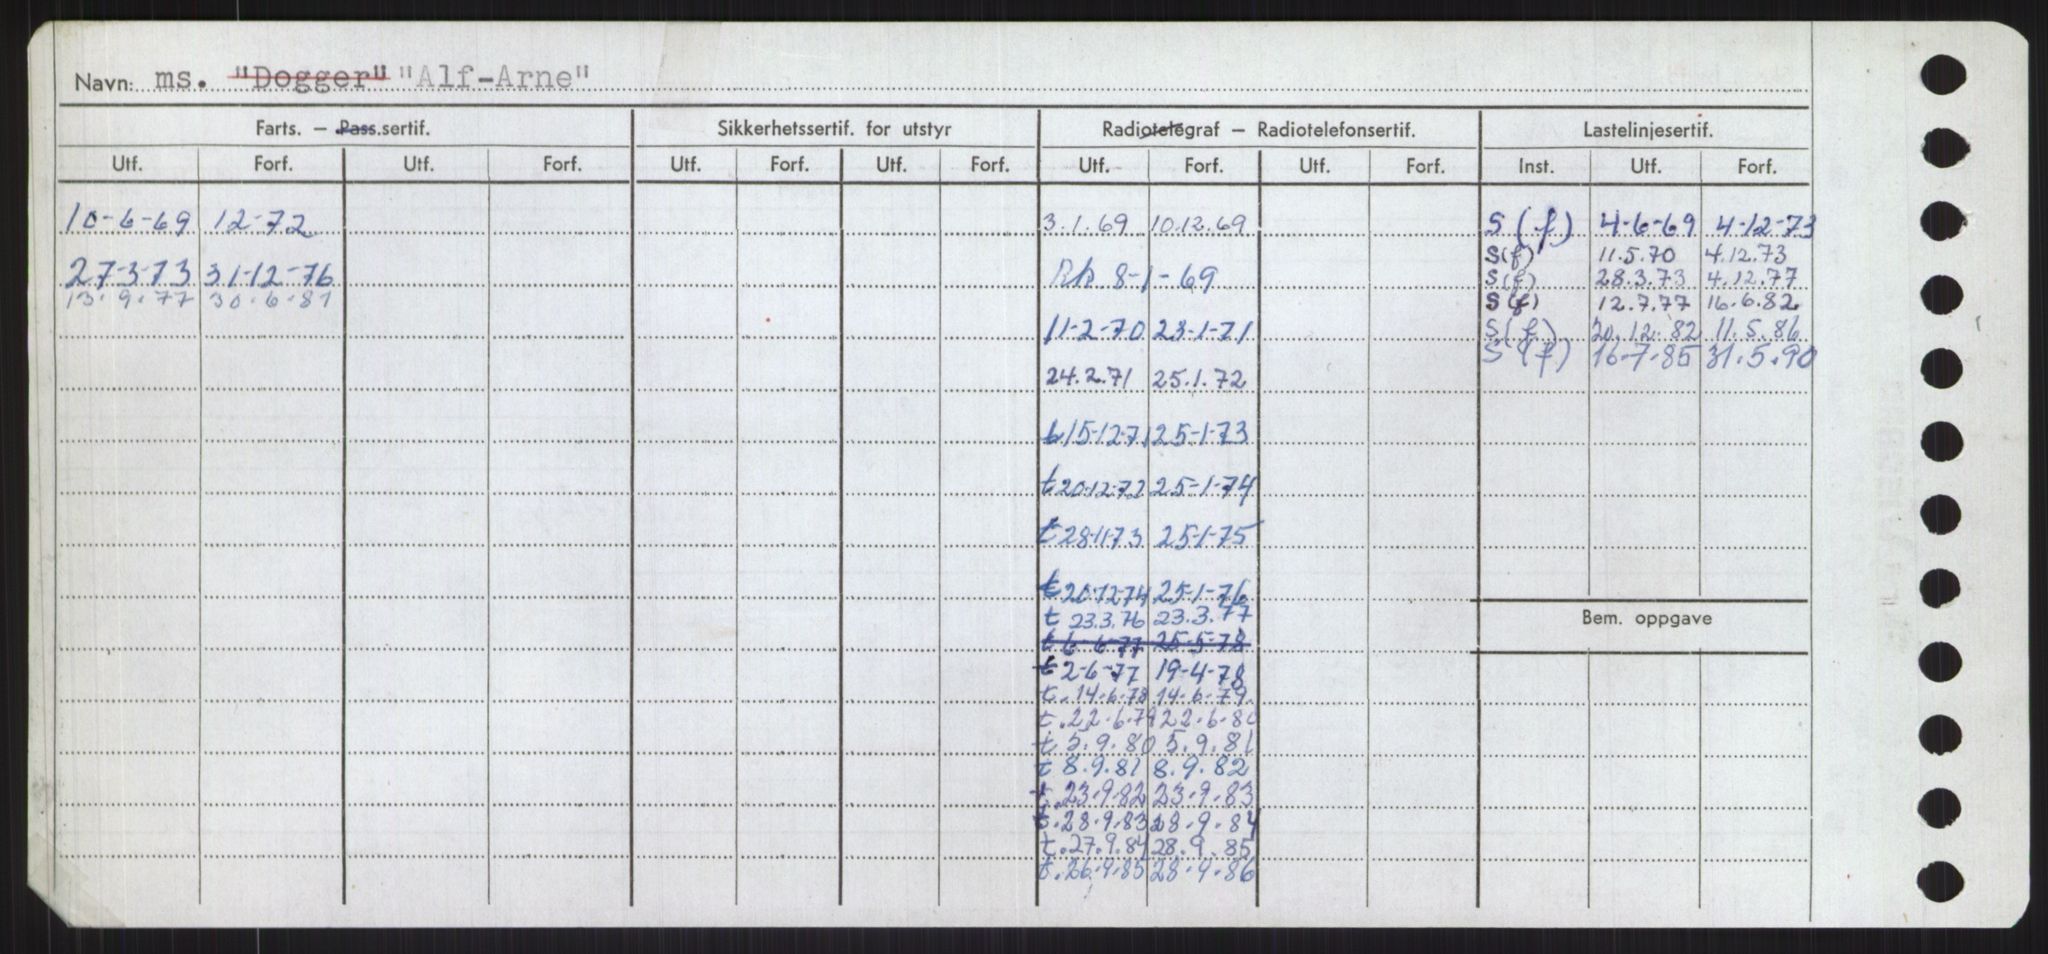 Navn: ms. "Dogger" "Alf-Arne"
Farts. – Pass.sertif. Sikkerhetssertif. for utstyr Radiotelegraf – Radiotelefonsertif. Lastelinjesertif.
Utf. Forf. Utf. Forf. Utf. Forf. Utf. Forf. Utf. Forf. Utf. Forf. Inst. Utf. Forf.
10-6-69 12-72 3.1.69 10.12.69 S (f) 4-6-69 4-12-73
S(f) 11.5.70 4.12.73
27-3-73 31-12-76 8-1-69 S(f) 28.3.73 4.12.77
13.9.77 30.6.81 S(f) 12.7.77 16.6.82
11-2-70 23-1-71 S(f) 20.12.82 11.5.86
S (f) 16-7-85 31.5.90
24.2.71 25.1.72
t 15-12-71 25-1-73
t 20-12-72 25-1-74
t 28-11-73 25-1-75
t 20-12-74 25-1-76
t 23.3.76 23.3.77 Bem. oppgave
t 6-6-77 25-5-78
t 2-6-77 19-4-78
t. 14.6.78 14.6.79.
t. 22.6.79 22.6.80
t 5.9.80 5.9.81
t 8.9.81 8.9.82
t. 23.9.82 23.9.83
t. 28.9.83 28.9.84
t. 27.9.84 28.9.85
t. 26.9.85 28.9.86